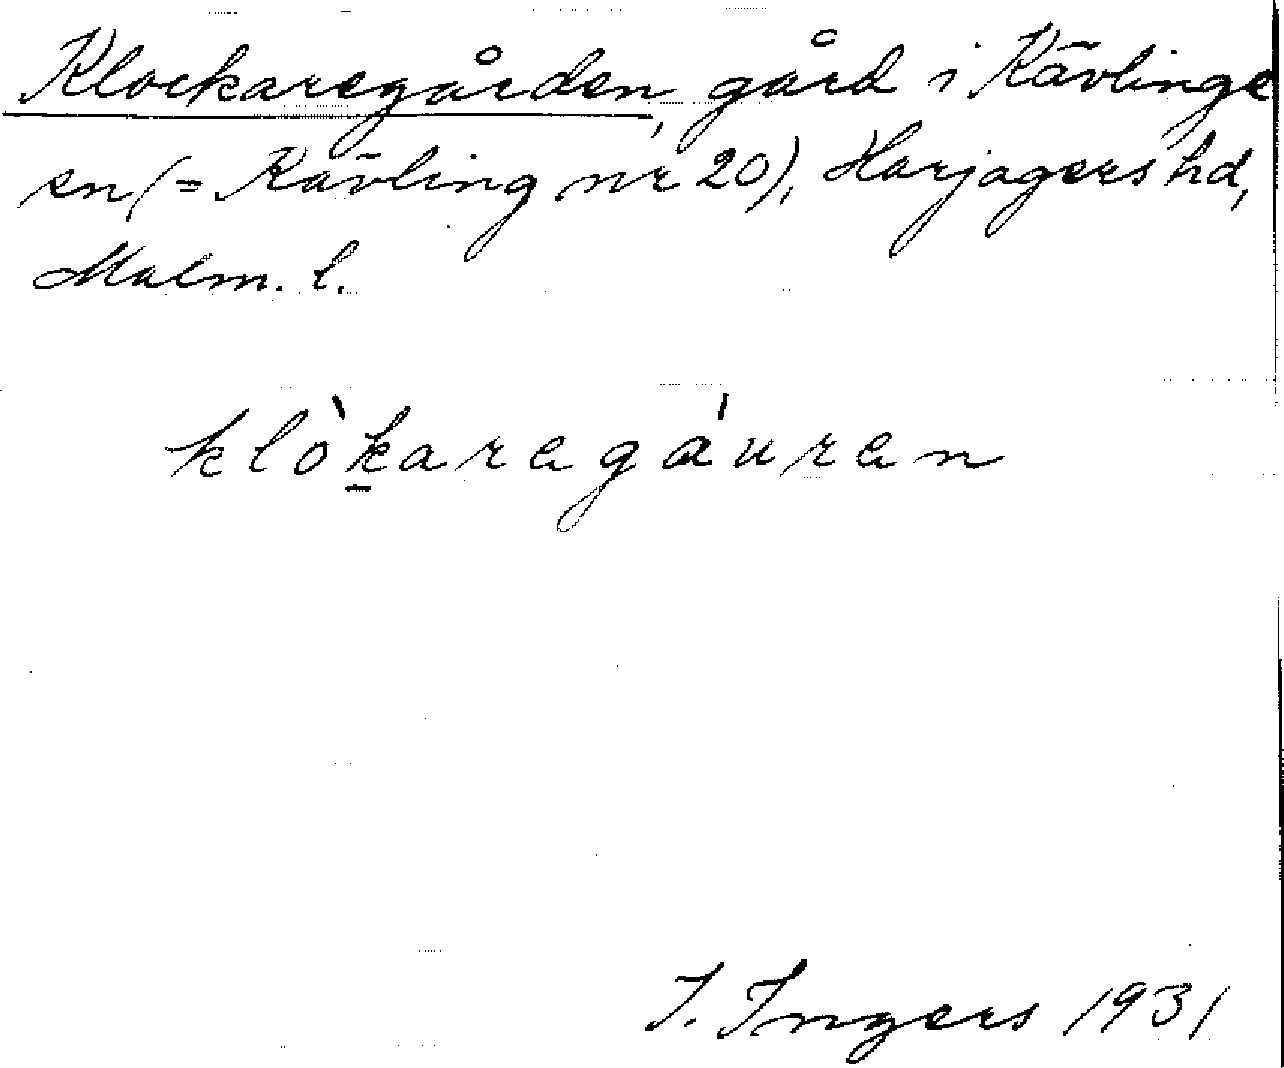 Klockaregården, gård i Kävlinge
sn (= Kävling nr 20), Harjagers hd,
Malm. l.
klòkaregáuren
I. Ingers 1931